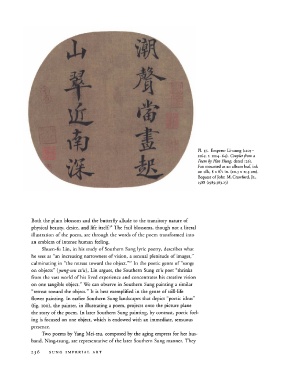 潮聲當晝起
山翠近南深
Emperor Li-tsung (1205–
1264; r. 1224–64). Couplet from a
Poem by Han Hung, dated 1261.
Fan mounted as an album leaf, ink
on silk,
Bequest of John M. Crawford, Jr.,
1988
Both the plum blossom and the butterfly allude to the transitory nature of
physical beauty, desire, and life itself. The frail blossoms, though not a literal
illustration of the poem, are through the words of the poem transformed into
an emblem of intense human feeling.
Shuen-fu Lin, in his study of Southern Sung lyric poetry, describes what
he sees as "an increasing narrowness of vision, a sensual plenitude of images,"
culminating in "the retreat toward the object." In the poetic genre of "songs
on objects" (yung-wu tz'u), Lin argues, the Southern Sung tz'u poet "shrinks
from the vast world of his lived experience and concentrates his creative vision
on one tangible object." We can observe in Southern Sung painting a similar
"retreat toward the object." It is best exemplified in the genre of still-life
flower painting. In earlier Southern Sung landscapes that depict "poetic ideas"
the painter, in illustrating a poem, projects onto the picture plane
the story of the poem. In later Southern Sung painting, by contrast, poetic feel-
ing is focused on one object, which is endowed with an immediate, sensuous
presence.
Two poems by Yang Mei-tzu, composed by the aging empress for her hus-
band, Ning-tsung, are representative of the later Southern Sung manner. They
236 SUNG IMPERIAL ART